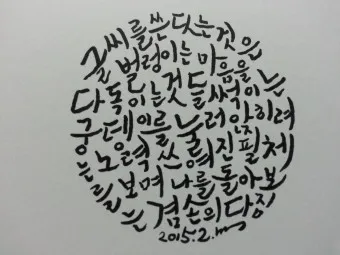 글씨를쓴다는것은
덜렁이는마음을
다독이는것들썩이는
궁뎅이를눌러앉히려
는노력쓰여진필체
를보며나를돌아보
는겸손의다짐
2015.2.